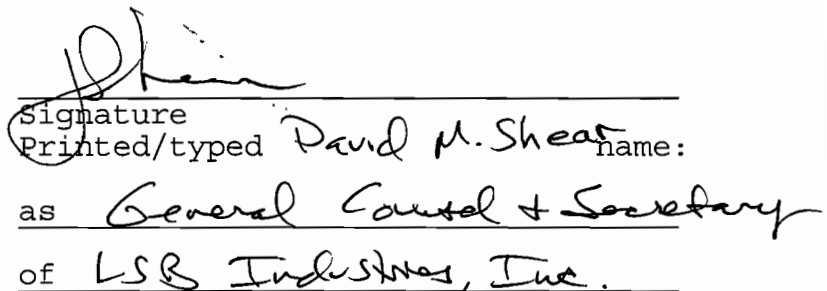 Signature
Printed/typed David M. Shear name:
as General Counsel + Secretary
of LSB Industries, Inc.